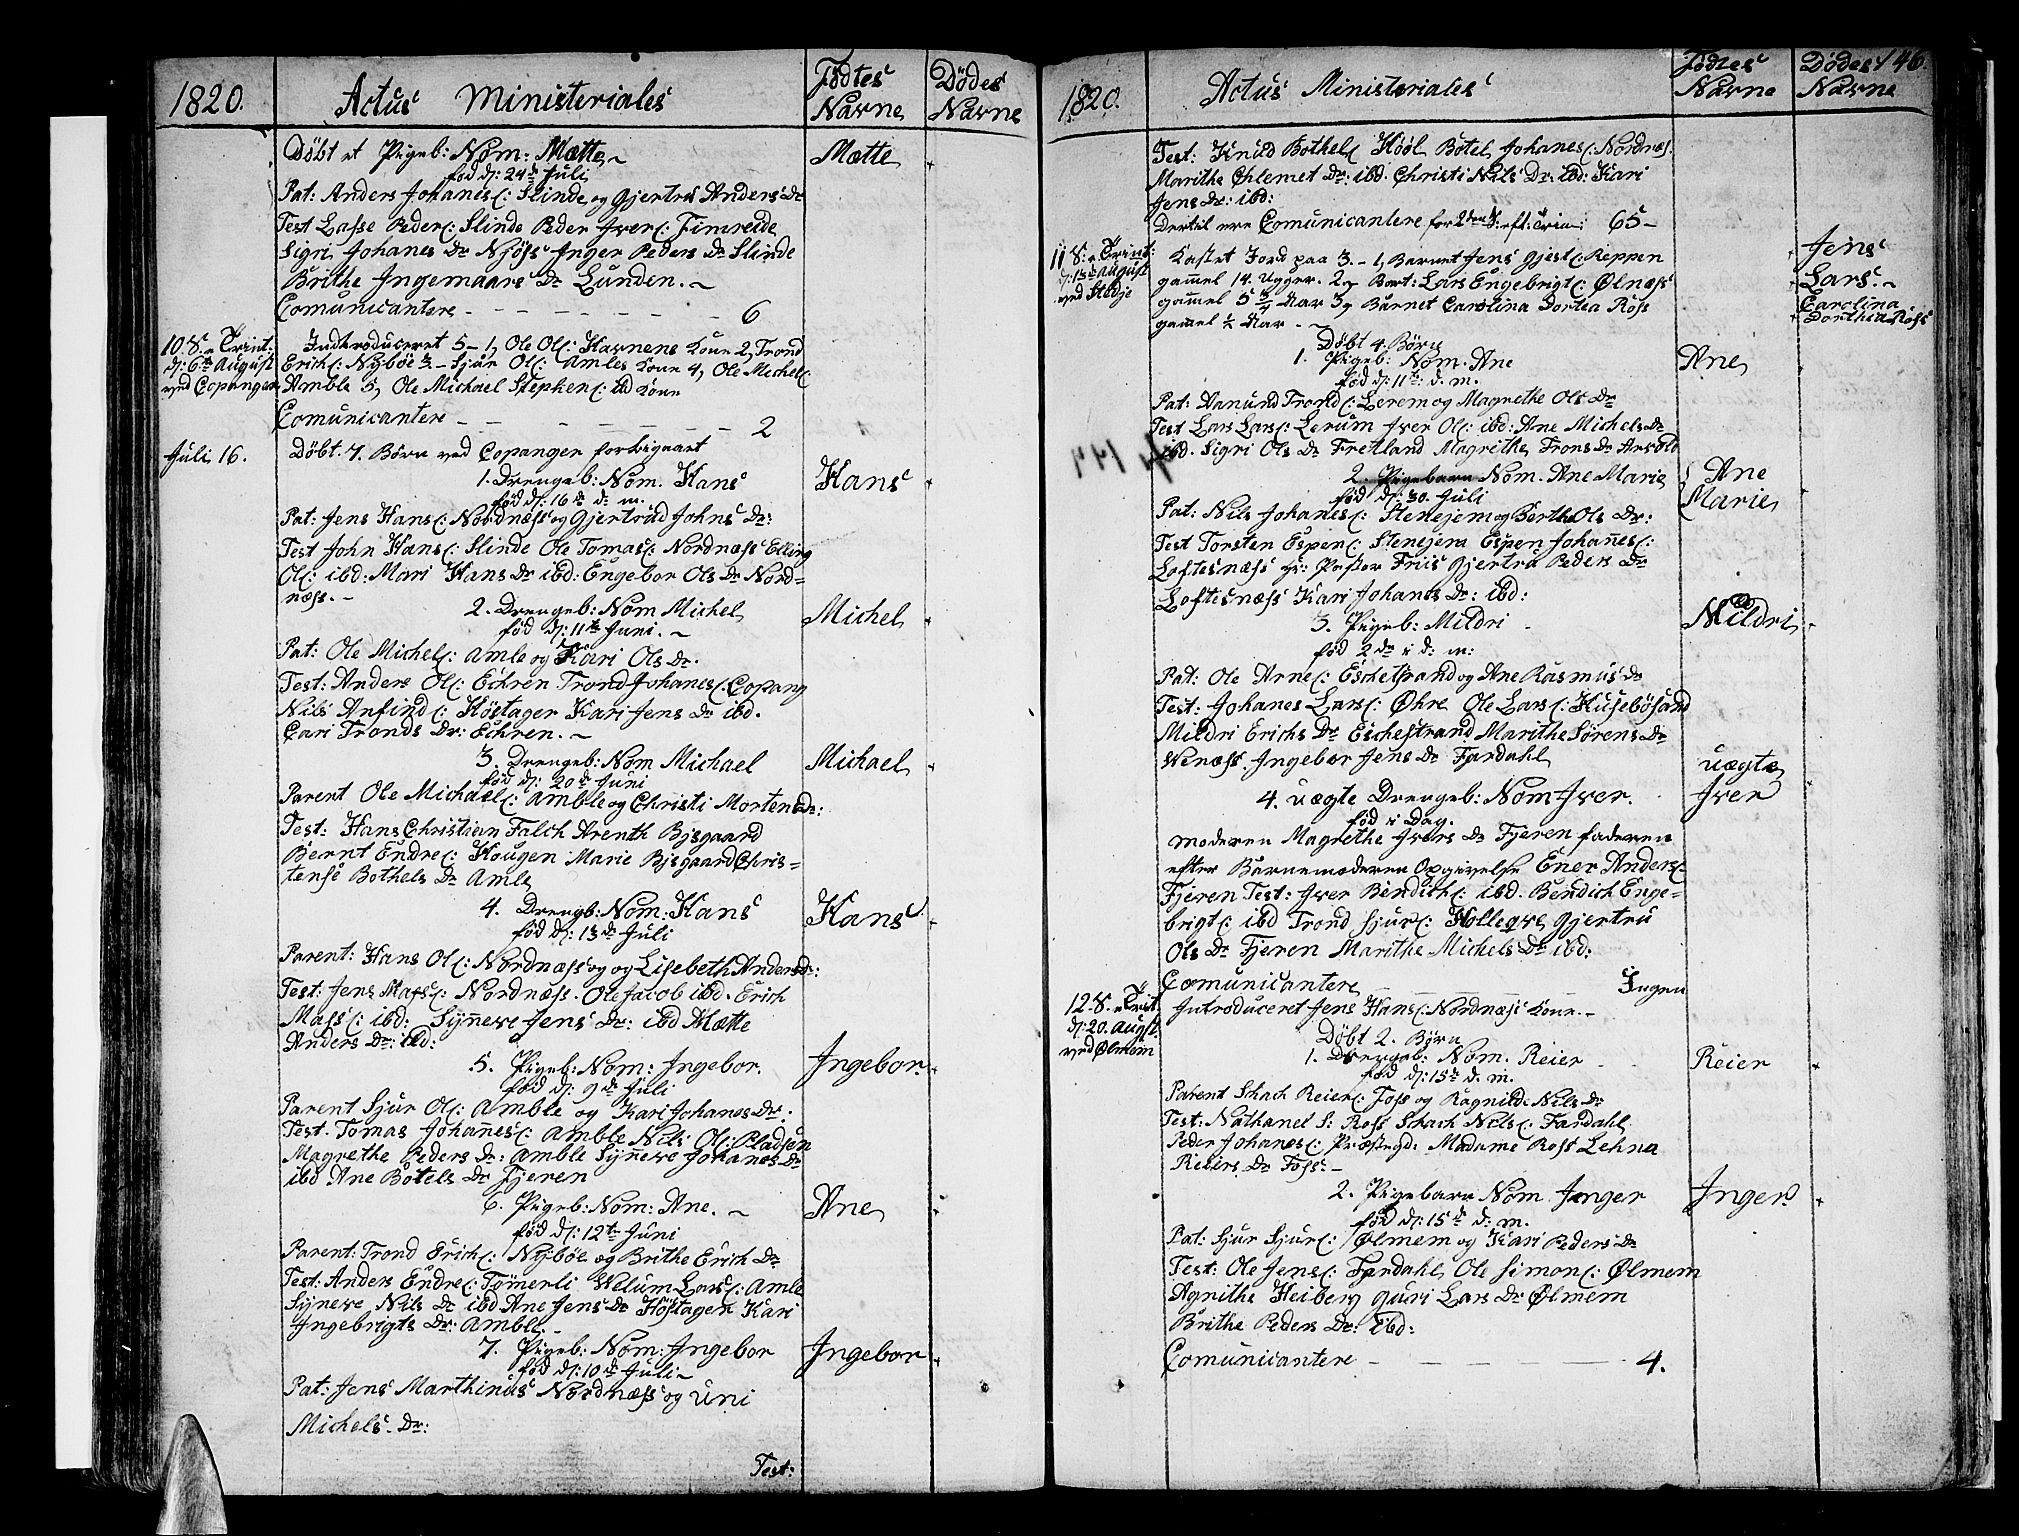 1820.
Actus Ministeriales
Födtes Navne
Dödes Navne
Döbt et Pigeb: Nom: Mætte
Mætte
fød d: 24de Juli
Pat: Anders Johanes: Slinde og Gjertru Anders Dr
Test Lasse Peders: Slinde Peder Ivers: Fimreide
Sigri Johanes Dr Njöss Inger Peders Dr Slinde
Brithe Ingemaars Dr Lunden.
Comunicantere 6
10 S: e Trint: d: 6te August ved Copanger
Introduceret 5 - 1, Ole Ols: Havnens Kone 2, Trond
Erichs: Nÿböe 3 - Sjur Ols: Amles Kone 4, Ole Michels:
Amble 5, Ole Michael Stephens: ibd Kone
Comunicantere 2
Juli 16.
Döbt 7. Börn ved Copanger forbigaaet
1. Drengeb: Nom. Hans
Hans
fød d: 16de d: m.
Pat: Jens Hans: Nordnæss og Gjertrud Johns Dr:
Test John Hans: Slinde Ole Tomas: Nordnæss Elling
Ols: ibd: Mari Hans Dr ibd: Engebor Ols Dr Nord=
næss. -
2. Drengeb: Nom Michel
Michel
fød d: 11te Juni.
Pat: Ole Michels: Amle og Kari Ols Dr.
Test: Anders Ols: Echren Trond Johanes: Copang
Nils Anfinds: Höstager Kari Jens Dr ibd.
Cari Tronds Dr: Echren.
3. Drengeb: Nom Michael
Michael
fød d: 20de Juni
Parent Ole Michaels: Amble og Christi Mortens Dr:
Test: Hans Christian Falch Arenth Bjsgaard
Bernt Endres: Hougen Marie Bjsgaard Chris=
tense Bothels Dr Amle
4. Drengb: Nom: Hans
Hans
fød d: 13de Juli
Parent: Hans Ols: Nordnæss og og Lisebeth Anders Dr:
Test: Jens Mass: Nordnæss. Ole Jacob ibd. Erich
Mass: ibd: Sÿneve Jens Dr: ibd Mætte
Anders Dr: ibd:
5. Pigeb: Nom: Ingebor.
Ingebor.
fød d: 9de Juli
Parent Sjur Ols: Amble og Kari Johanes Dr.
Test. Tomas Johanes: Amble Nils Ols: Pladsen
Magrethe Peders Dr: Amble Sÿneve Johanes Dr
ibd Ane Botels Dr Fjeren
6. Pigeb: Nom: Ane.
Ane
fød d: 12te Juni
Parent: Trond Erichs: Nÿböe og Brithe Erich Dr
Test: Anders Endres: Tÿmerli Welum Lars: Amle
Sÿneve Nils Dr ibd Ane Jens Dr Höstager Kari
Ingebrigts Dr: Amble.
7. Pigeb: Nom: Ingebor
Ingebor
fød d: 10de Juli
Pat: Jens Marthinus Nordnæss og Uni
Michels Dr:
Test:
1820.
Actus Ministeriales
Födtes Navne
Dödes Navne
146
Test: Knud Bothels: Hööl Botel Johanes: Nordnæs.
Marithe Chlemet Dr: ibd. Christi Nils Dr: ibd: Kari
Jens Dr: ibd:
Dertil ere Comunicantere for S: eft: Trin: 65
11 S: e Trint: d: 13de August ved Stedje
Kastet Jord paa 3. - 1, Barnet Jens Gjests: Reppen
Jens
gamel 14. Ugger. 2, Bort: Lars Engebrigts: Ølnæss
Lars.
gamel 5 3/4 Aar 3, Barnet Carolina Dortea Ross
Carolina Dorthea Ross
gamel 1/2 Aar
Döbt 4. Börn
1. Pigeb: Nom. Ane
Ane
fød d: 11te d. m.
Pat: Aanund Tronds: Lerem og Magrethe Ols Dr
Test Lars Lars: Lerum Iver Ols: ibd: Ane Michels Dr
ibd. Sigri Ols Dr Fretland Magrethe Trons Dr
2. Pigebarn Nom. Ane Marie
Ane Marie
fød d: 30. Juli
Pat: Nils Johanes: Stenejem og Berthe Ols Dr:
Test Torsten Espens: Stenejem Espen Johanes:
Loftesnæss Hr: Pastor Friis Gjertru Peders Dr
Loftesnæss Kari Johanes Dr: ibd:
3. Pigeb: Mildri
Mildri
fød 2de i d: m:
Pat: Ole Arnes: Eschestrand og Ane Rasmus Dr
Test: Johanes Lars: Øhre Ole Lars: Husebösand
Mildri Erichs Dr Eschestrand Marithe Sörens Dr
Wenæss. Ingebor Jens Dr Fardahl
uægte
4. uægte Drengeb: Nom Iver.
Iver
fød i Dag.
moderen Magrethe Ivers Dr Fjeren faderen
efter Barnemoderen Opgivelse Ener Anders:
Fjeren Test: Iver Bendichs: ibd. Bendich Enge=
brigts: ibd Trond Sjurs: Hollegve Gjertru
Ols Dr Fjeren Marithe Michels Dr ibd:
Comunicantere Ingen
12 S. e Trit. d: 20. Augst: ved Ølmem
Introduceret Jens Hans: Nordnæss Kone.
Döbt 2. Börn
1. Drengeb: Nom. Reier
Reier
fød d: 15de d. m.
Parent Schach Reiers: Foss og Ragnild Nils Dr
Test: Nathanel S: Ross Schach Nils: Fardahl
Peder Johanes: Præstegd: Madame Ross Lehna
Reiers Dr Foss. -
2. Pigebarn Nom Inger
Inger
fød d: 15de d: m.
Pat: Sjur Sjurs: Ølmem og Kari Peders Dr
Test: Ole Jens: Fardahl Ole Simons: Ølmem
Agnithe Heiberg Guri Lars Dr Ølmem
Brithe Peders Dr: ibd:
Comunicantere 4.